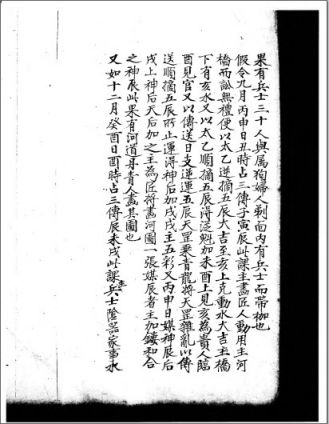 果有兵士三十人與屬狗婦人剃面內有兵士而帶枷也
假令九月丙申日丑時占三傳子寅辰此課主畫匠人動用主河
橋而訟無禮便以太乙逆摘五辰大吉至亥上克動水大吉主橋
下有亥水又以太乙順摘五辰得從魁加未酉上見亥為貴人臨
酉見官又以傳送日支逆運五辰天罡乗青龍將天罡雜亂以傳
送順摘五辰所止運得神后加戌戌主五彩又丙申日媒神辰后
戌上神后天后加之主為匠將畫河圖一張媒辰者主加鏤和合
之神辰此果有河道丹青人畫其圖也
又如十二月癸酉日酉時占三傳辰未戌此課主兵士陰器家事水